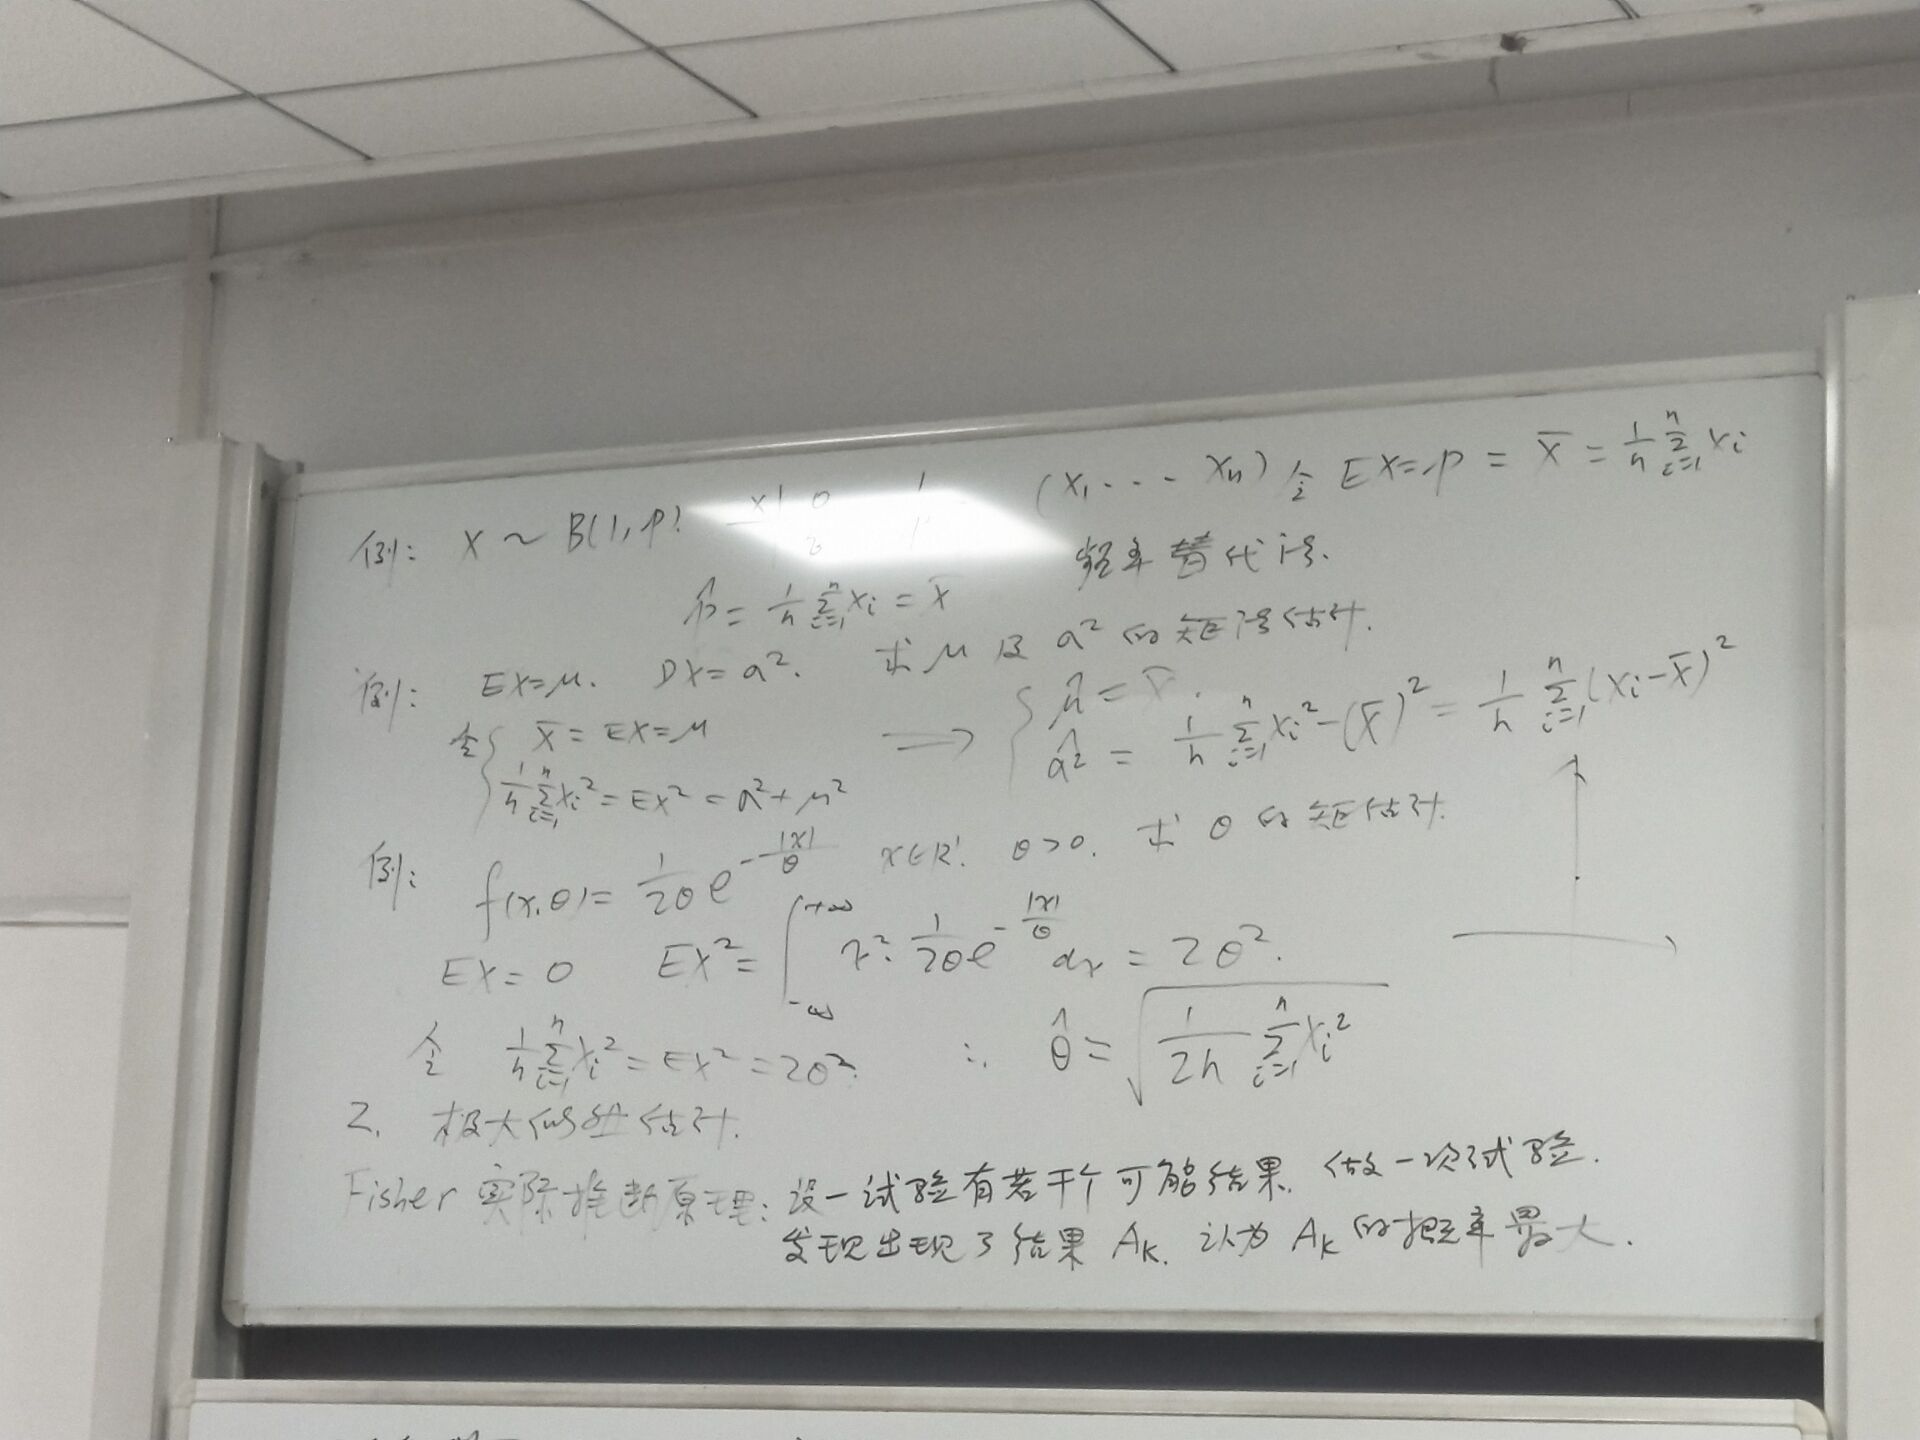 例: X ~ B(1, p) X 0 1 (X₁ --- Xₙ) 令 EX = p = X̄ = 1/n ∑ᵢ₌₁ⁿ Xᵢ
p̂ = 1/n ∑ᵢ₌₁ⁿ Xᵢ = X̄ 频率替代法.
例: EX = μ. DX = σ². 求 μ 及 σ² 的矩法估计.
令 { X̄ = EX = μ ⟹ { μ̂ = X̄.
1/n ∑ᵢ₌₁ⁿ Xᵢ² = EX² = σ² + μ² σ̂² = 1/n ∑ᵢ₌₁ⁿ Xᵢ² - (X̄)² = 1/n ∑ᵢ₌₁ⁿ (Xᵢ - X̄)²
例: f(x, θ) = 1/2θ e^(-|x|/θ) x ∈ R¹. θ > 0. 求 θ 的矩估计.
EX = 0 EX² = ∫₋∞^+∞ x² · 1/2θ e^(-|x|/θ) dx = 2θ².
令 1/n ∑ᵢ₌₁ⁿ Xᵢ² = EX² = 2θ². ∴ θ̂ = √(1/2n ∑ᵢ₌₁ⁿ Xᵢ²)
2. 极大似然估计.
Fisher 实际推断原理: 设一试验有若干个可能结果. 做一次试验.
发现出现了结果 Aₖ. 认为 Aₖ 的概率最大.